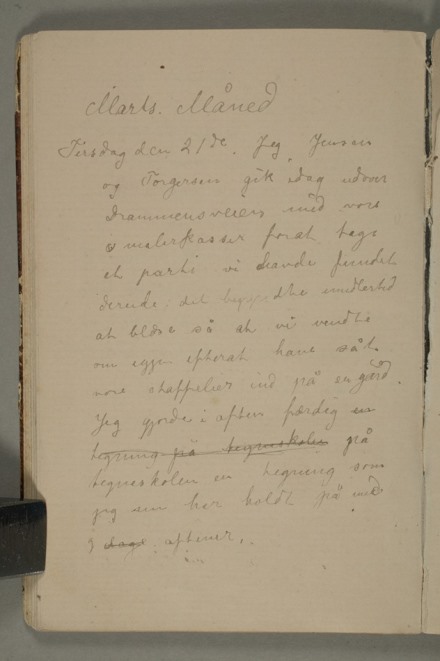 Marts. Måned
Tirsdag den 21de. Jeg, Jensen
og Torgersen gik idag udover
Drammensveien med vore
malerkasser forat tage
et parti vi havde fundet
derude; det begyndte imidlertid
at blæse så at vi vendte
om igjen efterat have sat
vore staffelier ind på en gård.
Jeg gjorde i aften færdig en
tegning på tegneskolen på
tegneskolen en tegning som
jeg nu har holdt på med
i 3 dage aftener.